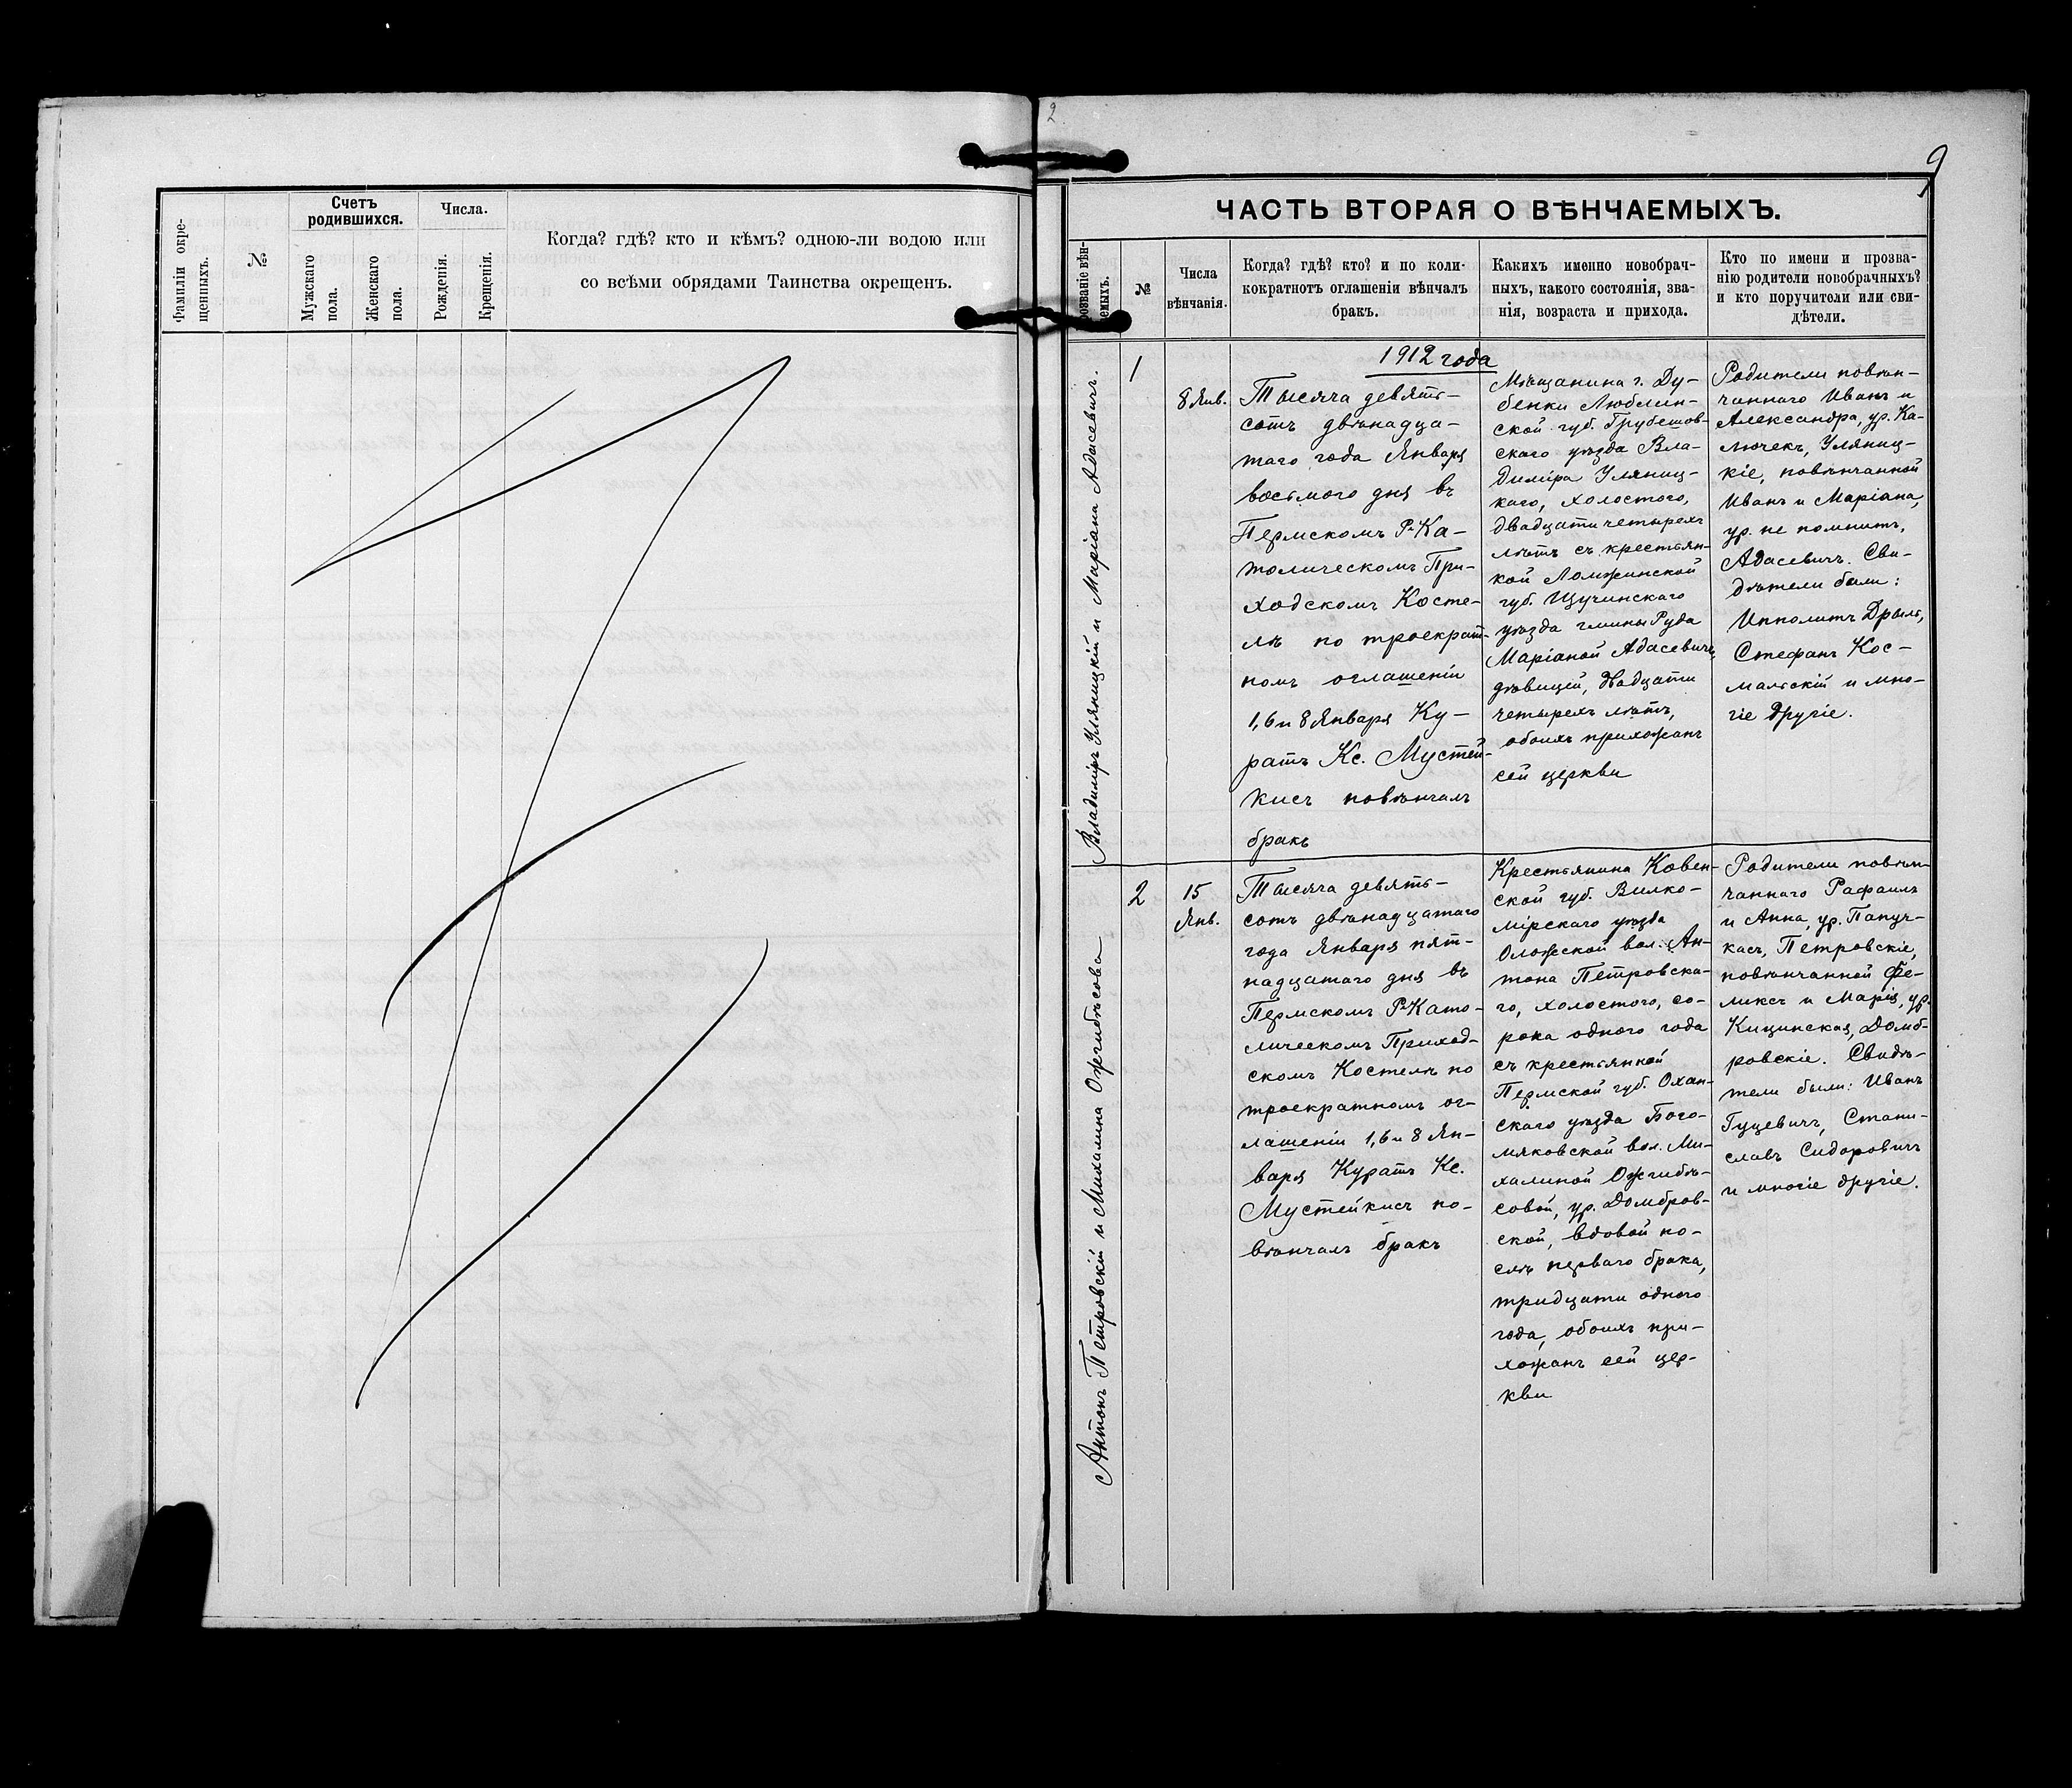 2
9
Фамиліи окре-
щенныхъ.
№
Счетъ
родившихся.
Мужскаго
пола.
Женскаго
пола.
Числа.
Рожденія.
Крещенія.
Когда? гдѣ? кто и кѣмъ? одною-ли водою или
со всѣми обрядами Таинства окрещенъ.
ЧАСТЬ ВТОРАЯ О ВѢНЧАЕМЫХЪ.
розваніе вѣн-
емыхъ.
№
Числа
вѣнчанія.
Когда? гдѣ? кто? и по коли-
кократнотъ оглашеніи вѣнчалъ
бракъ.
Какихъ именно новобрач-
ныхъ, какого состоянія, зва-
нія, возраста и прихода.
Кто по имени и прозва-
нію родители новобрачныхъ?
и кто поручители или сви-
дѣтели.
Владиміръ Уляницкій и Маріана Адасевичъ.
1
8 Янв.
1912 года
Тысяча девять-
сотъ двѣнадца-
таго года Января
восьмого дня въ
Пермскомъ Р-Ка-
толическомъ При-
ходскомъ Косте-
лѣ по троекрат-
номъ оглашеніи
1, 6 и 8 Января Ку-
ратъ Кс. Мустей-
кисъ повѣнчалъ
бракъ
Мѣщанина г. Ду-
бенки Люблин-
ской губ. Грубешов-
скаго уѣзда Вла-
диміра Уляниц-
каго, холостого,
двадцати четырехъ
лѣтъ съ крестьян-
кой Ломжинской
губ. Щучинскаго
уѣзда гмины Руда
Маріаной Адасевичъ,
дѣвицей, двадцати
четырехъ лѣтъ,
обоихъ прихожанъ
сей церкви
Родители повѣн-
чаннаго Иванъ и
Александра, ур. Ка-
лючекъ, Уляниц-
кіе, повѣнчанной
Иванъ и Маріана,
ур. не помнитъ,
Адасевичъ. Сви-
дѣтели были:
Ипполитъ Дрыль,
Стефанъ Кос-
мальскій и мно-
гіе другіе.
Антонъ Петровскій и Михалина Ожгибѣсова
2
15
Янв.
Тысяча девять-
сотъ двѣнадцатаго
года Января пят-
надцатаго дня въ
Пермскомъ Р-Като-
лическомъ Приход-
скомъ Костелѣ по
троекратномъ ог-
лашеніи 1, 6 и 8 Ян-
варя Куратъ Кс.
Мустейкисъ по-
вѣнчалъ бракъ
Крестьянина Ковен-
ской губ. Вилко-
мірскаго уѣзда
Оложской вол. Ан-
тона Петровска-
го, холостого, со-
рока одного года
съ крестьянкой
Пермской губ. Охан-
скаго уѣзда Бого-
мяковской вол. Ми-
халиной Ожгибѣ-
совой, ур. Домбров-
ской, вдовой по-
слѣ перваго брака,
тридцати одного
года, обоихъ при-
хожанъ сей цер-
кви
Родители повѣн-
чаннаго Рафаилъ
и Анна, ур. Папуч-
касъ, Петровскіе,
повѣнчанной Фе-
ликсъ и Марія, ур.
Кицинская, Домб-
ровскіе. Свидѣ-
тели были: Иванъ
Гуцевичъ, Стани-
славъ Сидоровичъ
и многіе другіе.